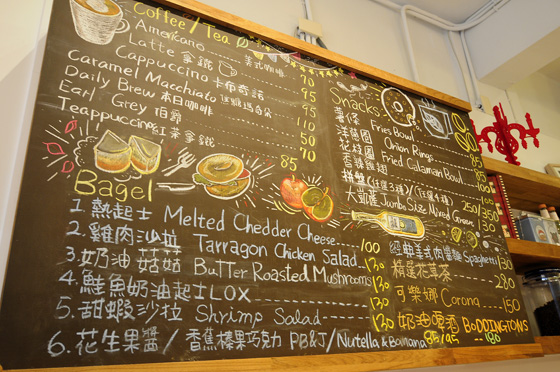 Coffee / Tea
Americano 美式咖啡 70
Latte 拿鐵 95
Cappuccino 卡布奇諾 95
Caramel Macchiato 焦糖瑪奇朵 110
Daily Brew 本日咖啡 50
Earl Grey 伯爵 85
Teappuccino 紅茶拿鐵 70
85
Bagel
1. 熱起士 Melted Chedder Cheese 100
2. 雞肉沙拉 Tarragon Chicken Salad 130
3. 奶油菇菇 Butter Roasted Mushrooms 130
4. 鮭魚奶油起士 LOX 130
5. 甜蝦沙拉 Shrimp Salad 130
6. 花生果醬 / 香蕉榛果巧克力 PB&J / Nutella & Banana 85/95
Snacks
薯條 Fries Bowl
洋蔥圈 Onion Rings 80
花枝圈 Fried Calamari Bowl 85
香雞雞塊 100
拼盤(任選3種)/(任選4種) 250/350
大型 Jumbo Size Mixed Greens 130
經典美式肉醬麵 Spaghetti 130
精釀花草茶 230
可樂娜 Corona 150
奶油啤酒 BODDINGTONS 180